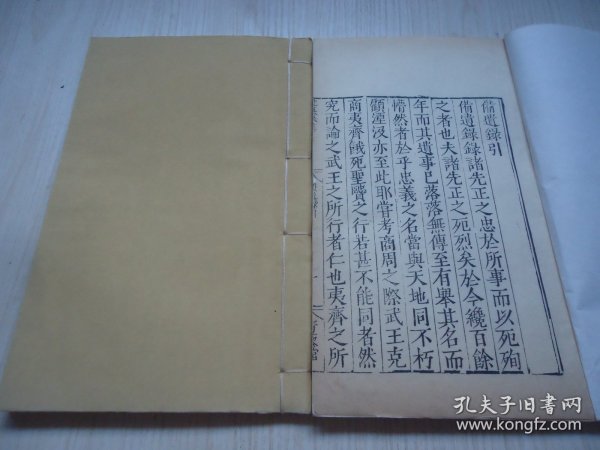 備遺錄引
備遺錄錄諸先正之忠於所事而以死殉
之者也夫諸先正之死烈矣於今纔百餘
年而其遺事已落落無傳至有舉其名而
懵然者於乎忠義之名當與天地同不朽
顧湮沒亦至此耶嘗考商周之際武王克
商夷齊餓死聖賢之行若甚不能同者然
究而論之武王之所行者仁也夷齊之所
孔夫子旧书网
www.kongfz.com